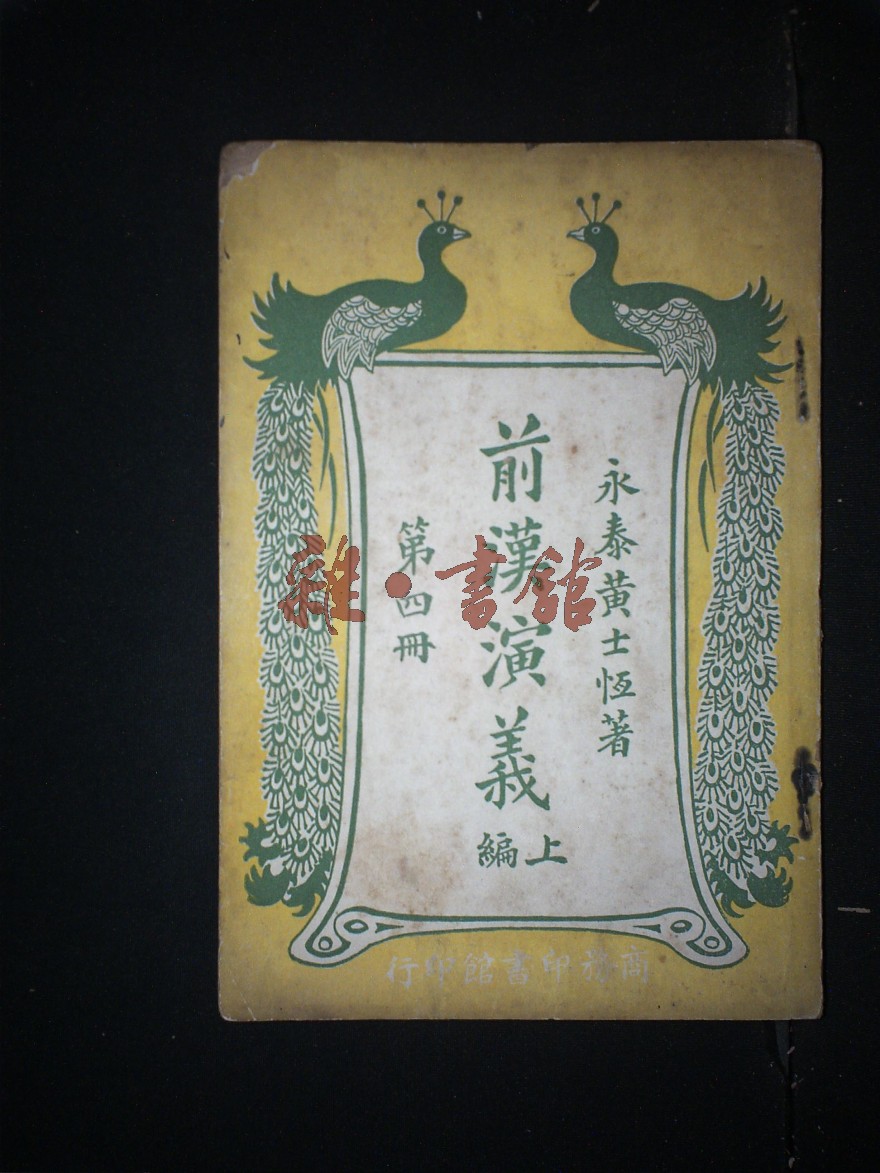 永泰黃士恆著
前漢演義
上編
第四冊
商務印書館印行
雜·書館